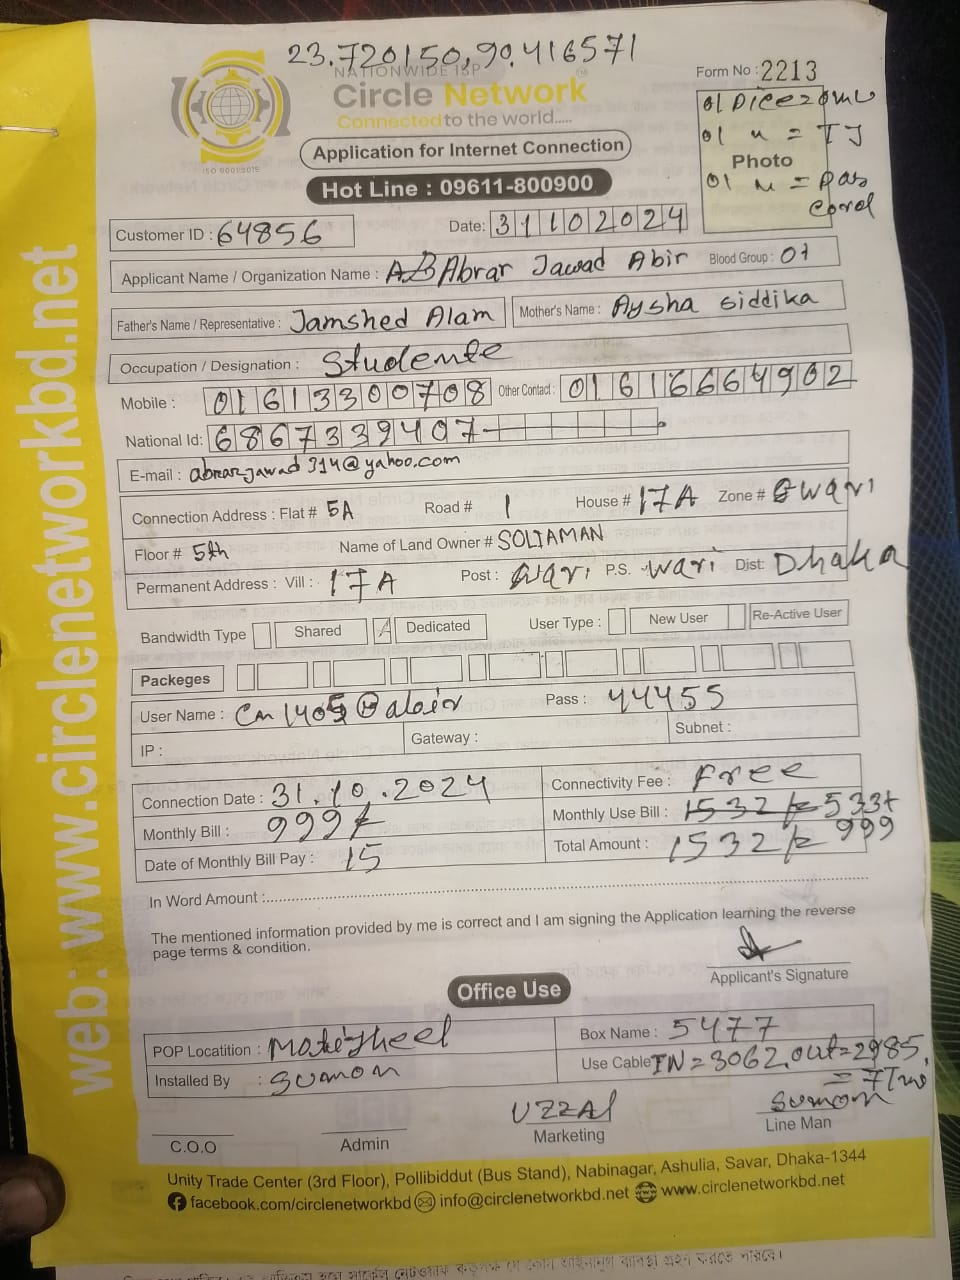 23.720150,90.416571
NATIONWIDE ISP
Circle Network
Connected to the world.....
ISO 9001:2015
Application for Internet Connection
Hot Line : 09611-800900
Form No : 2213
01
01 " = TJ
Photo
01 " =
Customer ID : 64856
Date: 31102024
Applicant Name / Organization Name : Abrar Jawad Abir Blood Group :
Father's Name / Representative : Jamshed Alam Mother's Name : Aysha Siddika
Occupation / Designation : Studente
Mobile : 01613300708 Other Contact : 01616664902
National Id: 6867339407
E-mail : abrarjawad314@yahoo.com
Connection Address : Flat # 5A Road # 1 House # 17A Zone # Owari
Floor # 5th Name of Land Owner # SOLIAMAN
Permanent Address : Vill : 17A Post : wari P.S. wari Dist: Dhaka
Bandwidth Type Shared Dedicated User Type : New User Re-Active User
Packeges
User Name : Pass : 44455
IP : Gateway : Subnet :
Connection Date : 31.10.2024 Connectivity Fee : Free
Monthly Bill : 999/ Monthly Use Bill : 1532/= 533+
999
Date of Monthly Bill Pay : 15 Total Amount : 1532/=
In Word Amount :
The mentioned information provided by me is correct and I am signing the Application learning the reverse
page terms & condition.
Applicant's Signature
Office Use
POP Locatition : Motijheel Box Name : 5477
Installed By : Sumon Use Cable IN = 3062. out = 2985,
UZZAL Sumon
C.O.O Admin Marketing Line Man
Unity Trade Center (3rd Floor), Pollibiddut (Bus Stand), Nabinagar, Ashulia, Savar, Dhaka-1344
facebook.com/circlenetworkbd info@circlenetworkbd.net www.circlenetworkbd.net
web: www.circlenetworkbd.net